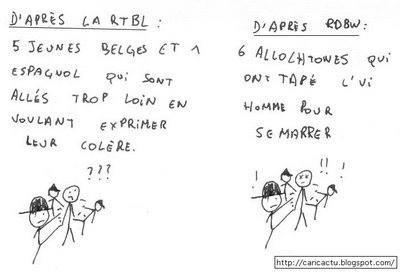 D'APRÈS LA RTBL :
5 JEUNES BELGES ET 1
ESPAGNOL QUI SONT
ALLÉS TROP LOIN EN
VOULANT EXPRIMER
LEUR COLÈRE.
???
D'APRÈS RDBW :
6 ALLOCHTONES QUI
ONT TAPÉ L'VI
HOMME POUR
SE MARRER
! !! !
http://caricactu.blogspot.com/